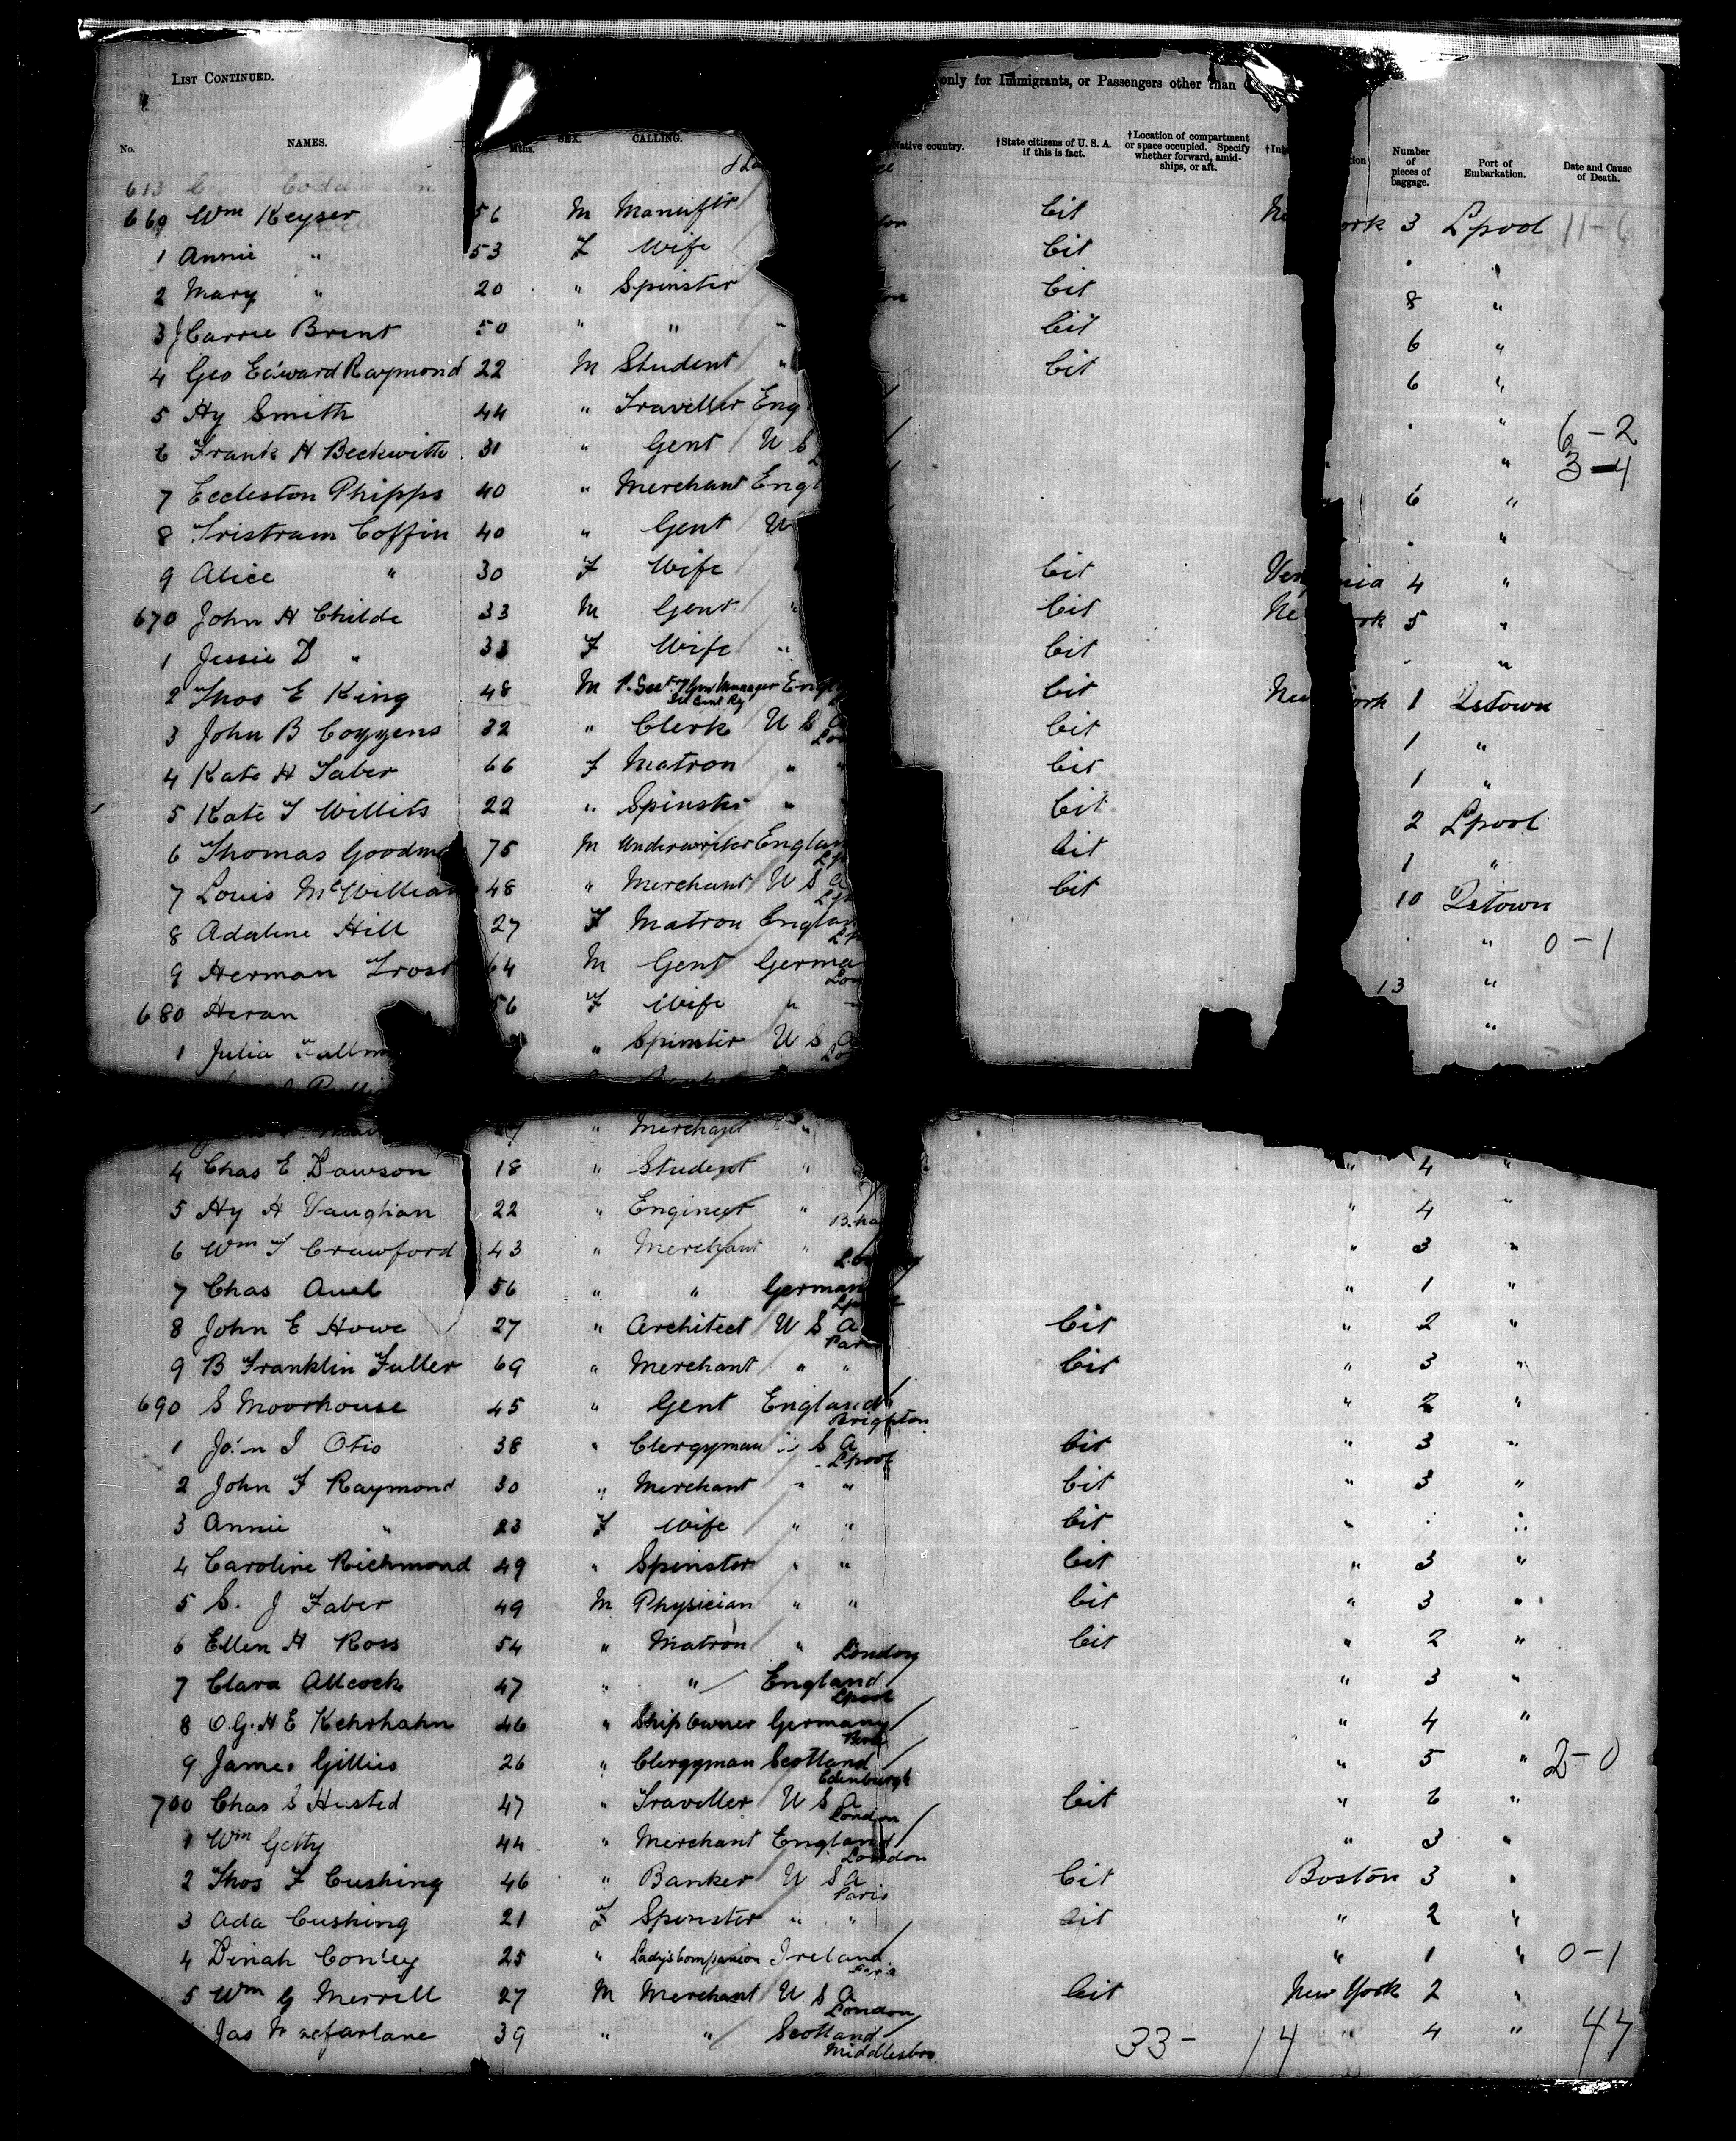 LIST CONTINUED.
only for Immigrants, or Passengers other than
No. NAMES. Mths. SEX. CALLING. Native country. †State citizens of U. S. A. if this is fact. †Location of compartment or space occupied. Specify whether forward, amidships, or aft. Number of pieces of baggage. Port of Embarkation. Date and Cause of Death.
613
669 Wm Keyser 56 M Manuftr Cit 3 Lpool 11-6
1 Annie " 53 F Wife Cit " "
2 Mary " 20 " Spinster Cit 8 "
3 Carrie Brent 50 " " " Cit 6 "
4 Geo Edward Raymond 22 M Student " Cit 6 "
5 Hy Smith 44 " Traveller Eng " " 6-2
6 Frank H Beckwith 31 " Gent U S " 3-4
7 Eccleston Phipps 40 " Merchant Engl 6 "
8 Tristram Coffin 40 " Gent U "
9 Alice " 30 F Wife Cit 4 "
670 John H Childe 33 M Gent " Cit 5 "
1 Jessie D " 33 F Wife " Cit " "
2 Thos E King 48 M Cit 1 Qstown
3 John B Coyyens 32 " Clerk U S A Cit 1 "
4 Kate H Taber 66 F Matron " " Cit 1 "
5 Kate T Willits 22 " Spinster " Cit 2 Lpool
6 Thomas Goodm 75 M Underwriter Englan Cit 1 "
7 Louis McWilliam 48 " Merchant U S A Cit 10 Qstown
8 Adaline Hill 27 F Matron Englan " 0-1
9 Herman Trost 64 M Gent Germa 13 "
680 Heran 56 F Wife " "
1 Julia " Spinster U S A
Merchant "
4 Chas E Dawson 18 " Student " " 4 "
5 Hy H Vaughan 22 " Engineer " " 4 "
6 Wm T Crawford 43 " Merchant " " 3 "
7 Chas Auel 56 " " German " 1 "
8 John E Howe 27 " Architect U S A Cit " 2 "
Par
9 B Franklin Fuller 69 " Merchant " " Cit " 3 "
690 S Moorhouse 45 " Gent England " 2 "
Brighton
1 John I Otis 38 " Clergyman U S A Cit " 3 "
Lpool
2 John F Raymond 30 " Merchant " " Cit " 3 "
3 Annie " 23 F Wife " " Cit " "
4 Caroline Richmond 49 " Spinster " " Cit " 3 "
5 S. J Faber 49 M Physician " " Cit " 3 "
6 Ellen H Ross 54 " Matron " Cit " 2 "
London
7 Clara Allcock 47 " " England " 3 "
Lpool
8 O. G. H E Kehrhahn 46 " Ship Owner Germany " 4 "
9 James Gillies 26 " Clergyman Scotland " 5 " 2-0
Edinburgh
700 Chas S Husted 47 " Traveller U S A Cit " 6 "
London
1 Wm Getty 44 " Merchant England " 3 "
London
2 Thos F Cushing 46 " Banker U S A Cit Boston 3 "
Paris
3 Ada Cushing 21 F Spinster " " Cit " 2 "
4 Dinah Conley 25 " Lady's Companion Ireland " 1 " 0-1
Paris
5 Wm G Merrill 27 M Merchant U S A Cit New York 2 "
London
Jas Macfarlane 39 " " Scotland 33- 14 " 4 " 47
Middlesbro